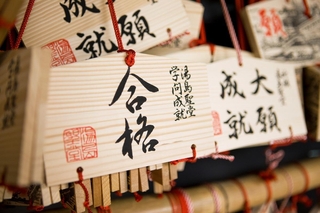 成就
願
合格
湯島聖堂
学問成就
大願
成就